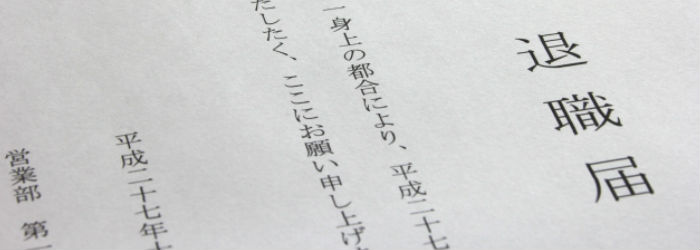 退職届
一身上の都合により、平成二十七
たしたく、ここにお願い申し上げ
平成二十七年
営業部 第一